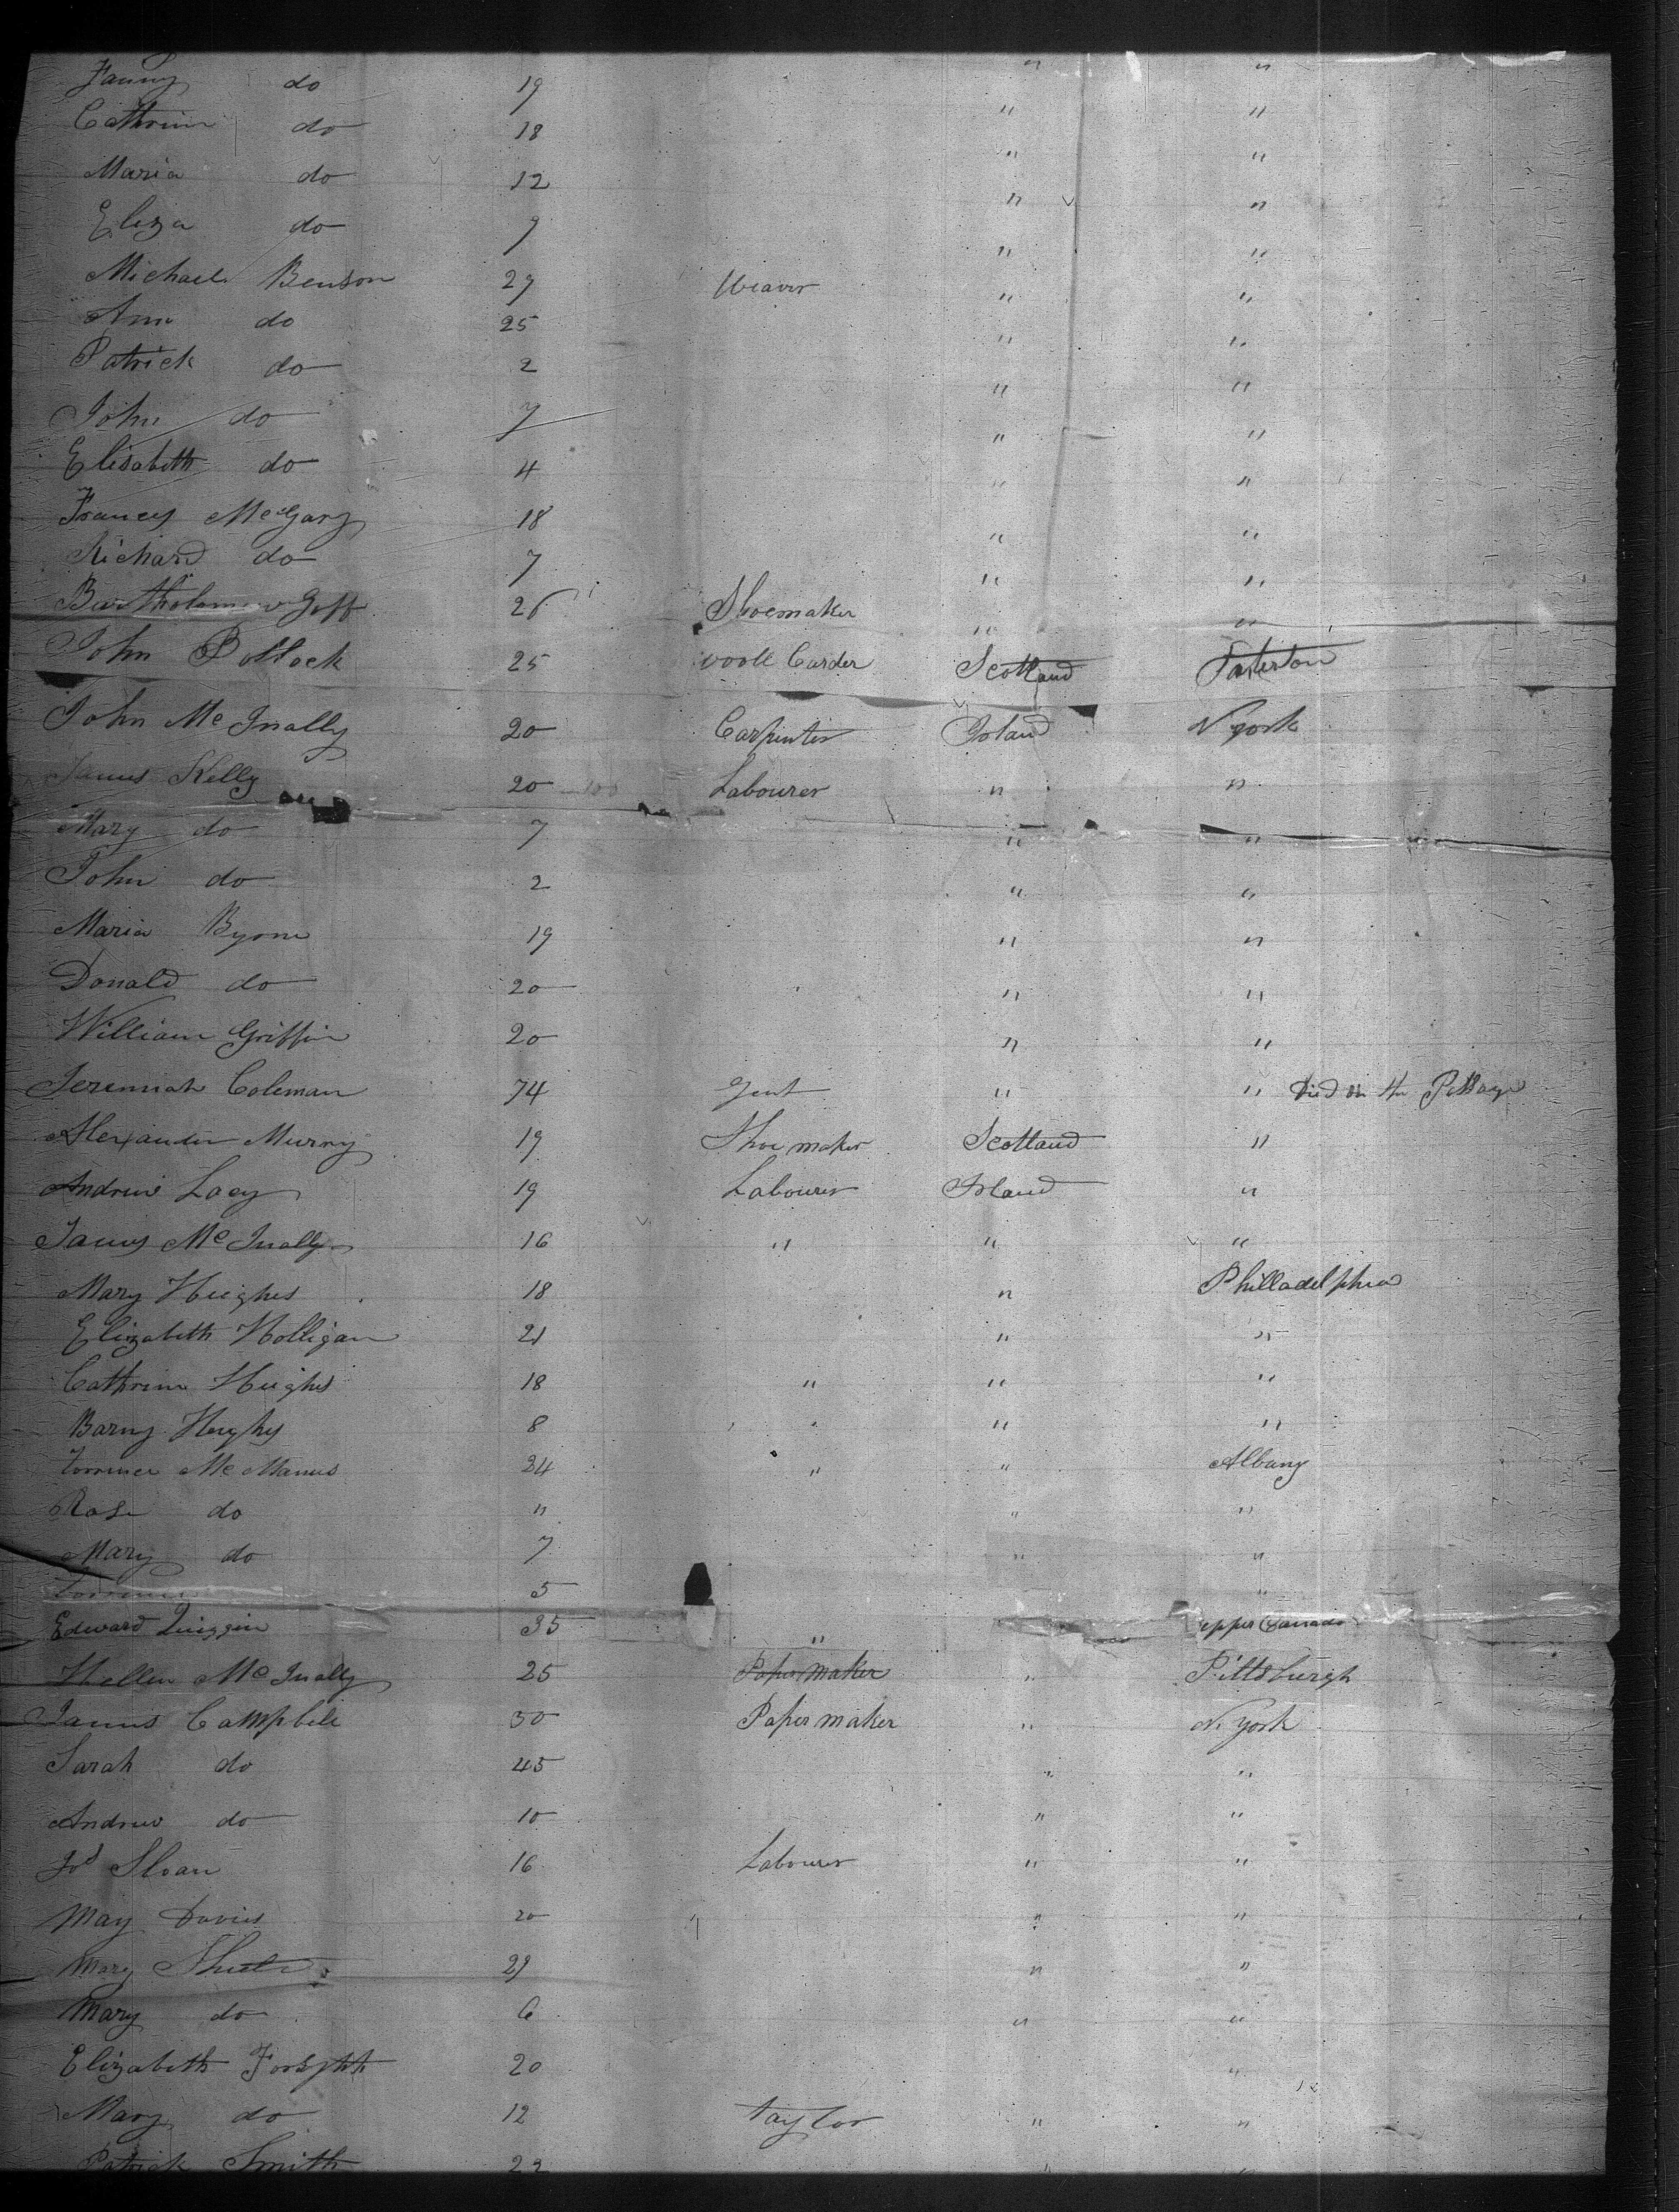 Fanny do 19 " "
Cathrine do 18 " "
Maria do 12 " "
Eliza do 9 " "
Michael Benson 29 Weaver " "
Ann do 25 " "
Patrick do 2 " "
John do 7 " "
Elisabeth do 4 " "
Francy McGary 18 " "
Richard do 7 " "
Bartholomew Goff 26 Shoemaker " "
John Pollock 25 Wooll Carder Scotland Paterson
John McInally 20 Carpenter Irland N York
James Kelly 20 Labourer " "
Mary do 7 " "
John do 2 " "
Maria Byrne 19 " "
Donald do 20 " "
William Griffin 20 " "
Jeremiah Coleman 74 Gent " " Died on the Passage
Alexander Murry 19 Shoe maker Scotland "
Andrew Lacy 19 Labourer Irland "
Jamy McInally 16 " " "
Mary Hughes 18 " Philladelphia
Elizabeth Holligan 21 " "
Cathrine Hughes 18 " " "
Barny Hughy 8 " "
Torrince McManus 24 " " Albany
Rose do " " "
Mary do 7 " "
Torrince 5 "
Edward Quiggin 35 " upper Canada
Hellen McInally 25 Paper maker " Pittsburgh
James Campbell 50 Paper maker " N. York
Sarah do 45 " "
Andrew do 10 " "
Jos Sloan 16 Labourer " "
May Davies 20 " "
Mary 29 " "
Mary do 6 " "
Elizabeth Forsyth 20 "
Mary do 12 Taylor " "
Patrick Smith 22 " "